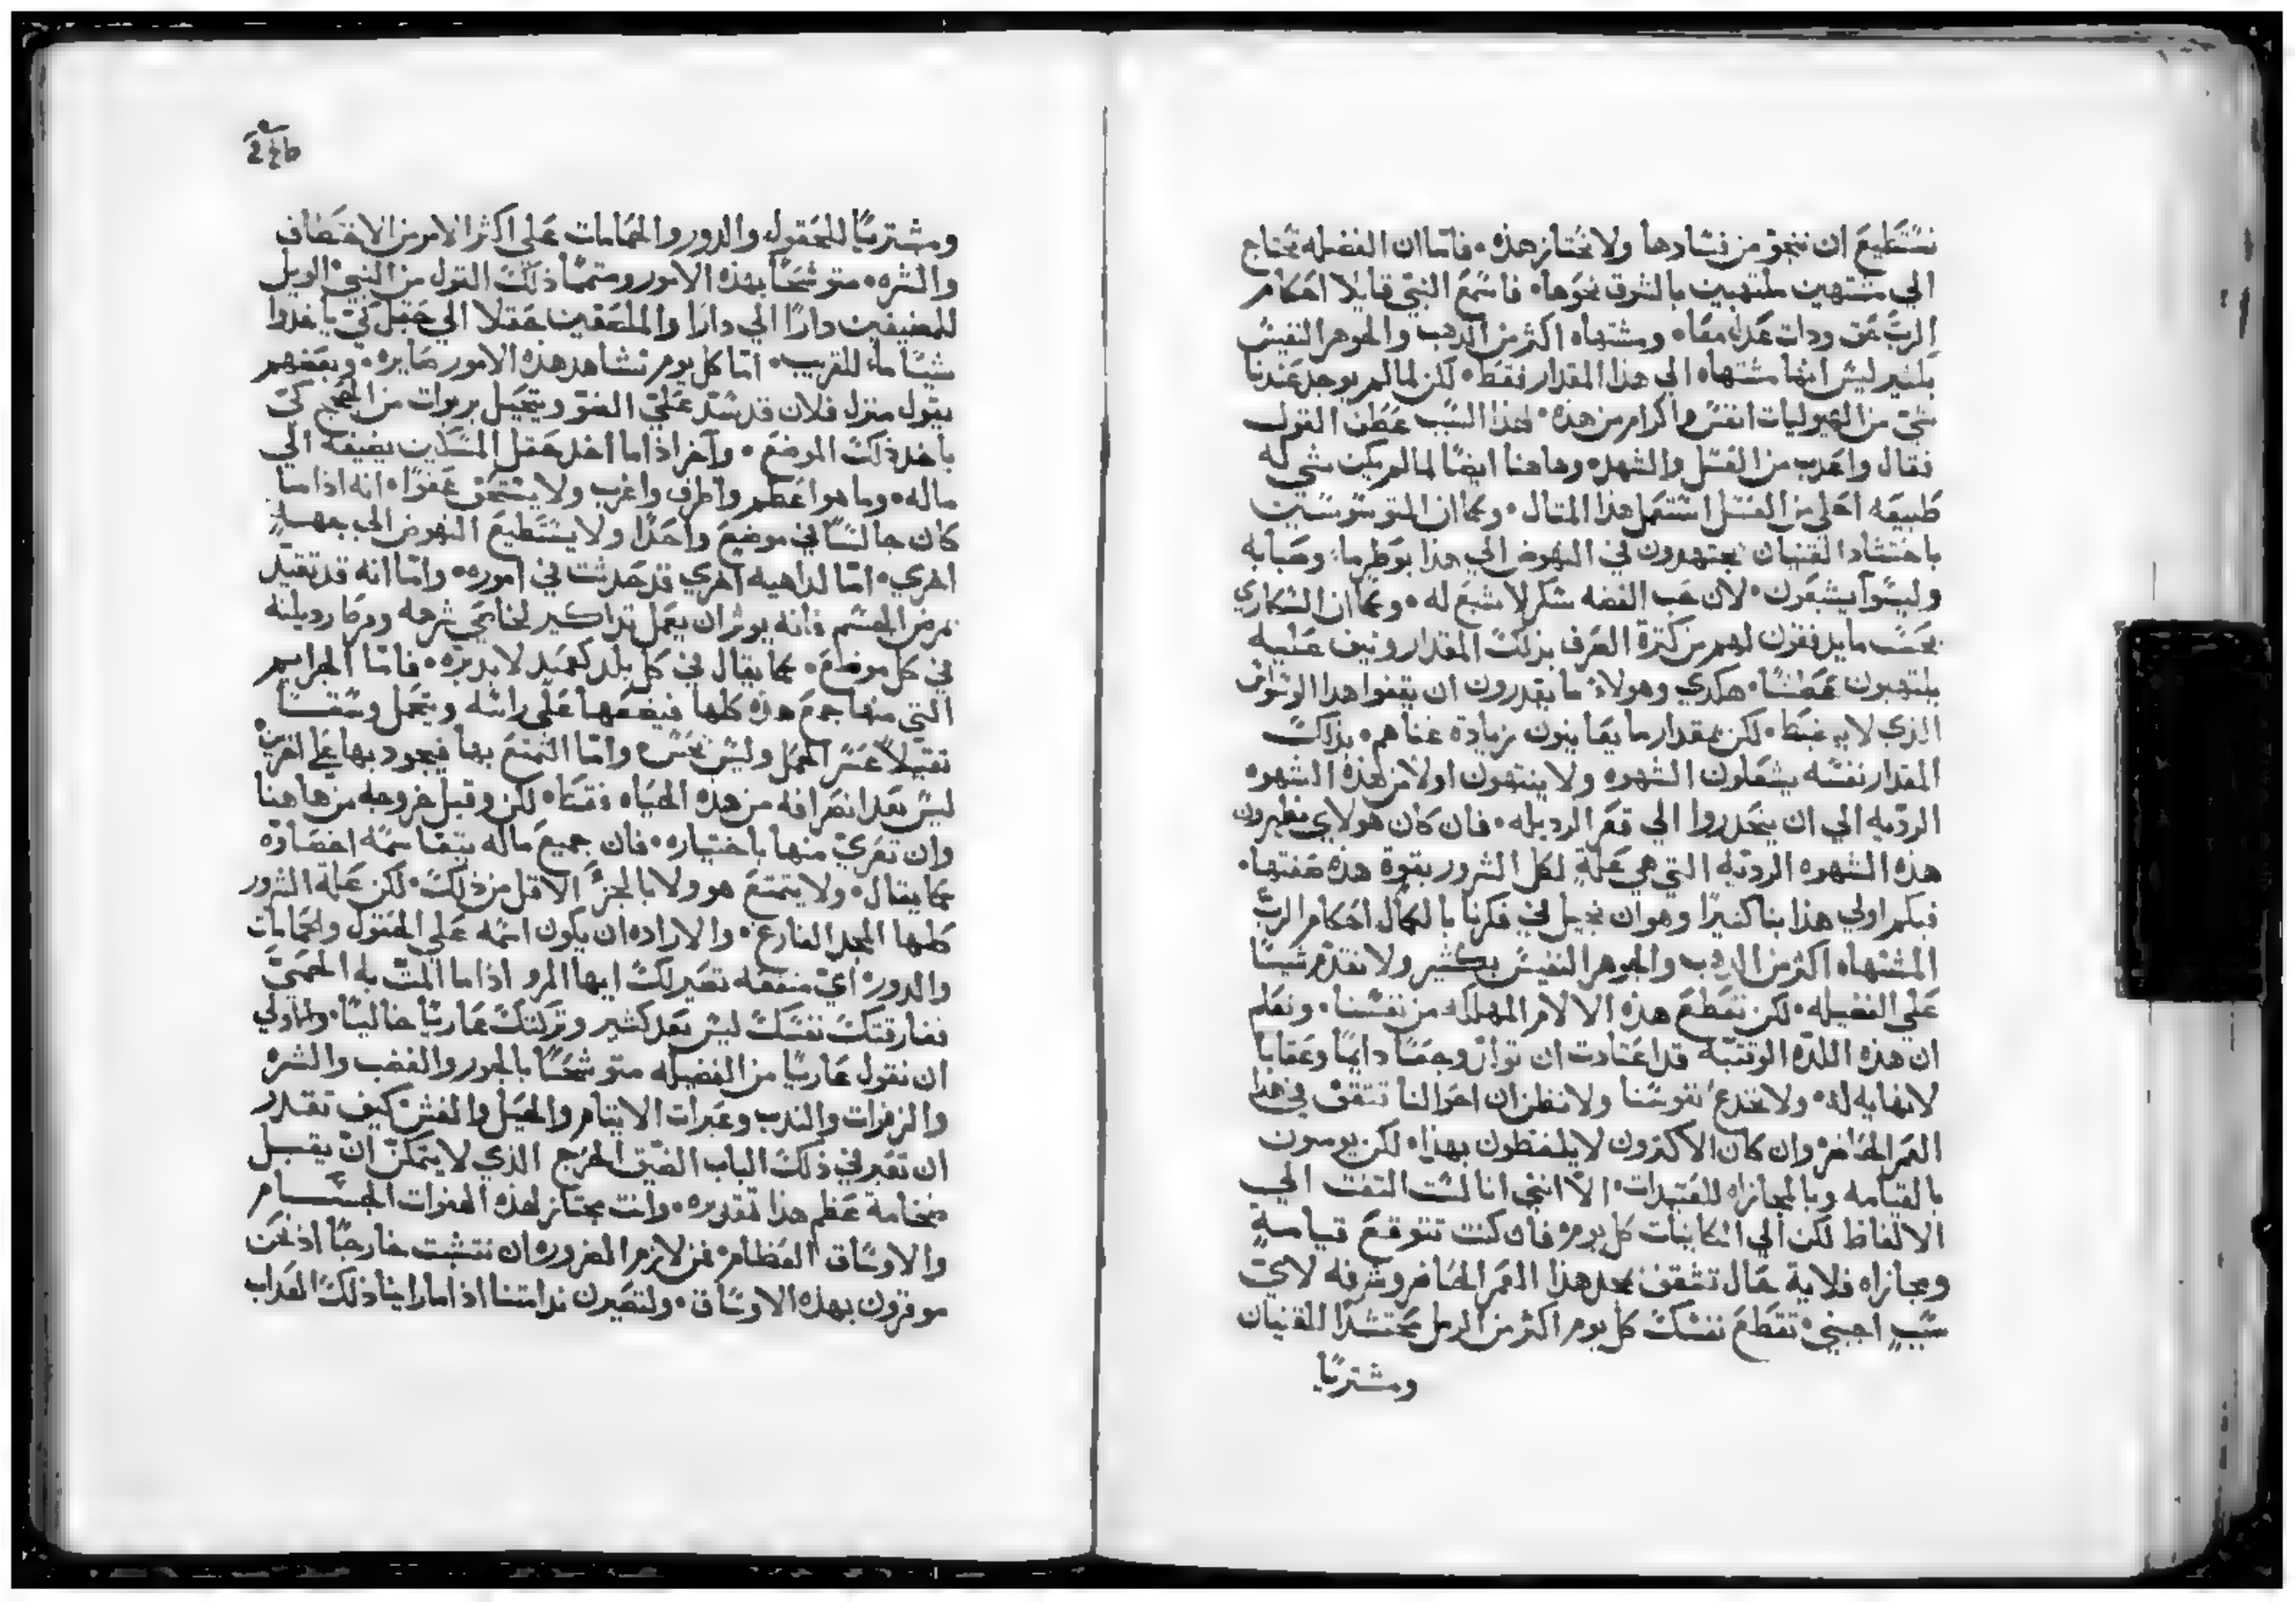 نستطيع ان ننجو من فسادها ولا نختار هذه • فاما ان الفضيله تحتاج
الي مشتهين ملتهبين بالشوق نحوها • فاسمع النبي قايلا احكام
الرب حق وذات عدل معا • ومشتهاه اكثر من الدهب والجوهر النفيس
بكثير ليس انها مشتهاه الي هذا المقدار فقط • لكن لما لم يوجد عندنا
شي من الهيوليات انفس واكرم من هذه • لهذا السبب عطف القول
فقال واعدب من العسل والشهد • وهاهنا ايضا لما لم يكن شي له
طبيعه احلي من العسل استعمل هذا المثال • وكما ان المتوسوسين
باحتشاد القنيان يجتهدون في النهوض الي هذا بوطر ما وصبابه
وليسوا يشبعون • لان حب الفضه سكر لا شبع له • وكما ان السكاري
بحسب ما يدفقون لهم من كثرة الصرف بذلك المقدار ونيف عليه
يلتهبون عطشا • هكدي وهولاء ما يقدرون ان يقفوا هدا الوسواس
الذي لا يضبط • لكن بمقدار ما يعاينون زيادة غناهم • بذلك
المقدار نفسه يشعلون الشهوه ولا ينتهون اولا من هذه الشهوه
الرديه الي ان ينحدروا الي قعر الرديله • فان كان هولاي يظهرون
هذه الشهوه الرديه التي هي علة لكل الشرور بقوة هذه صفتها •
فبكم اولي هذا بنا كثيرا وهو ان نجيل في فكرنا بالكمال احكام الرب
المشتهاه اكثر من الدهب والجوهر النفيس بكثير ولا نقدم شيا
علي الفضيله • لكن نقطع هذه الالام المهلكه من نفسنا • ونعلم
ان هذه اللذه الوقتيه قد اعتادت ان تولد وجعا دايما وعقابا
لانهايه له • ولا نخدع نفوسنا ولا نظن ان احوالنا تتقف في هدا
العمر الحاضر وان كان الاكثرون لا يلفظون بهذا • لكن يومنون
بالقيامه وبالمجازاه للعتيدات • الا انني انا لست التفت الي
الالفاظ لكن الي الكاينات كل يوم • فان كنت تتوقع قيامة
ومجازاه فلاية حال تشقف بمجد هذا العمر الحاضر وشرفه لاي
سبب اجبني تقطع نفسك كل يوم اكثر من الرمل محتشدا للقنيان
ومشتريا
ومشتريا للحقول والدور والحمامات علي اكثر الامر من الاختطاف
والشره • متوشحا بهذه الامور ومتمما ذلك القول من النبي الويل
للمضيفين دارا الي دارا والملصقين حقلا الي حقل كي ياخدوا
شيا ما للقريب • اما كل يوم نشاهد هذه الامور صايره • وبعضهم
يقول منزل فلان قد سد علي الضو ويتحيل بربوات من الحجج كي
ياخد ذلك الموضع • واخر اذا ما اخد حقل المسكين يضيفه الي
ماله • وما هو اعظم واطرف واغرب ولا يستحق عفوا • انه اذا ما
كان جالسا في موضع واحدا ولا يستطيع النهوض الي جهة
اخري • اما لداهيه اخري قد حدثت في اموره • واما انه قد تقيد
بمرض الجسم فانه يوثر ان يعمل تداكير لخاصي شرهه ومركا رديلته
في كل موضع • كما يقال في كل بلد كعميد لابد منه • فاما الجرايم
التي منها جمع هذه كلها فيضعها علي راسه ويتحمل وسقا
ثقيلا عسر الحمل وليس يحس • واما التمتع بها فيجود بها علي اخرين
ليس بعد انصرافه من هذه الحياه فقط • لكن وقبل خروجه من هاهنا
وان تعري منها باختياره • فان جميع ماله يتقاسمه اخصاوه
كما يقال • ولا يتمتع هو ولا بالجزء الاقل من ذلك • لكن علة الشرور
كلها المجد الفارغ • والاراده ان يكون اسمه علي الحقول والحمامات
والدور اي منفعه تصير لك ايها المرو اذا ما المت به الحمي
ففارقتك نفسك ليس بعد كثير وتركتك عاريا خاليا • والاولي
ان نقول عاريا من الفضيله متوشحا بالجور والغضب والشره
والزفرات والندب وعبرات الايتام والحيل والغش كيف تقدر
ان تعبر في ذلك الباب الضيق الحرج الذي لا يتمكن ان يقبل
ضخامة عظم هذا تقديره • وانت مجتاز لهذه الهفوات الجسام
والاوساق العظام فمن لازم الضروره ان نتثبت خارجا اذ نحن
موقرون بهذه الاوساق • ولتصيرن ندامتنا اذا ما راينا ذلك العداب